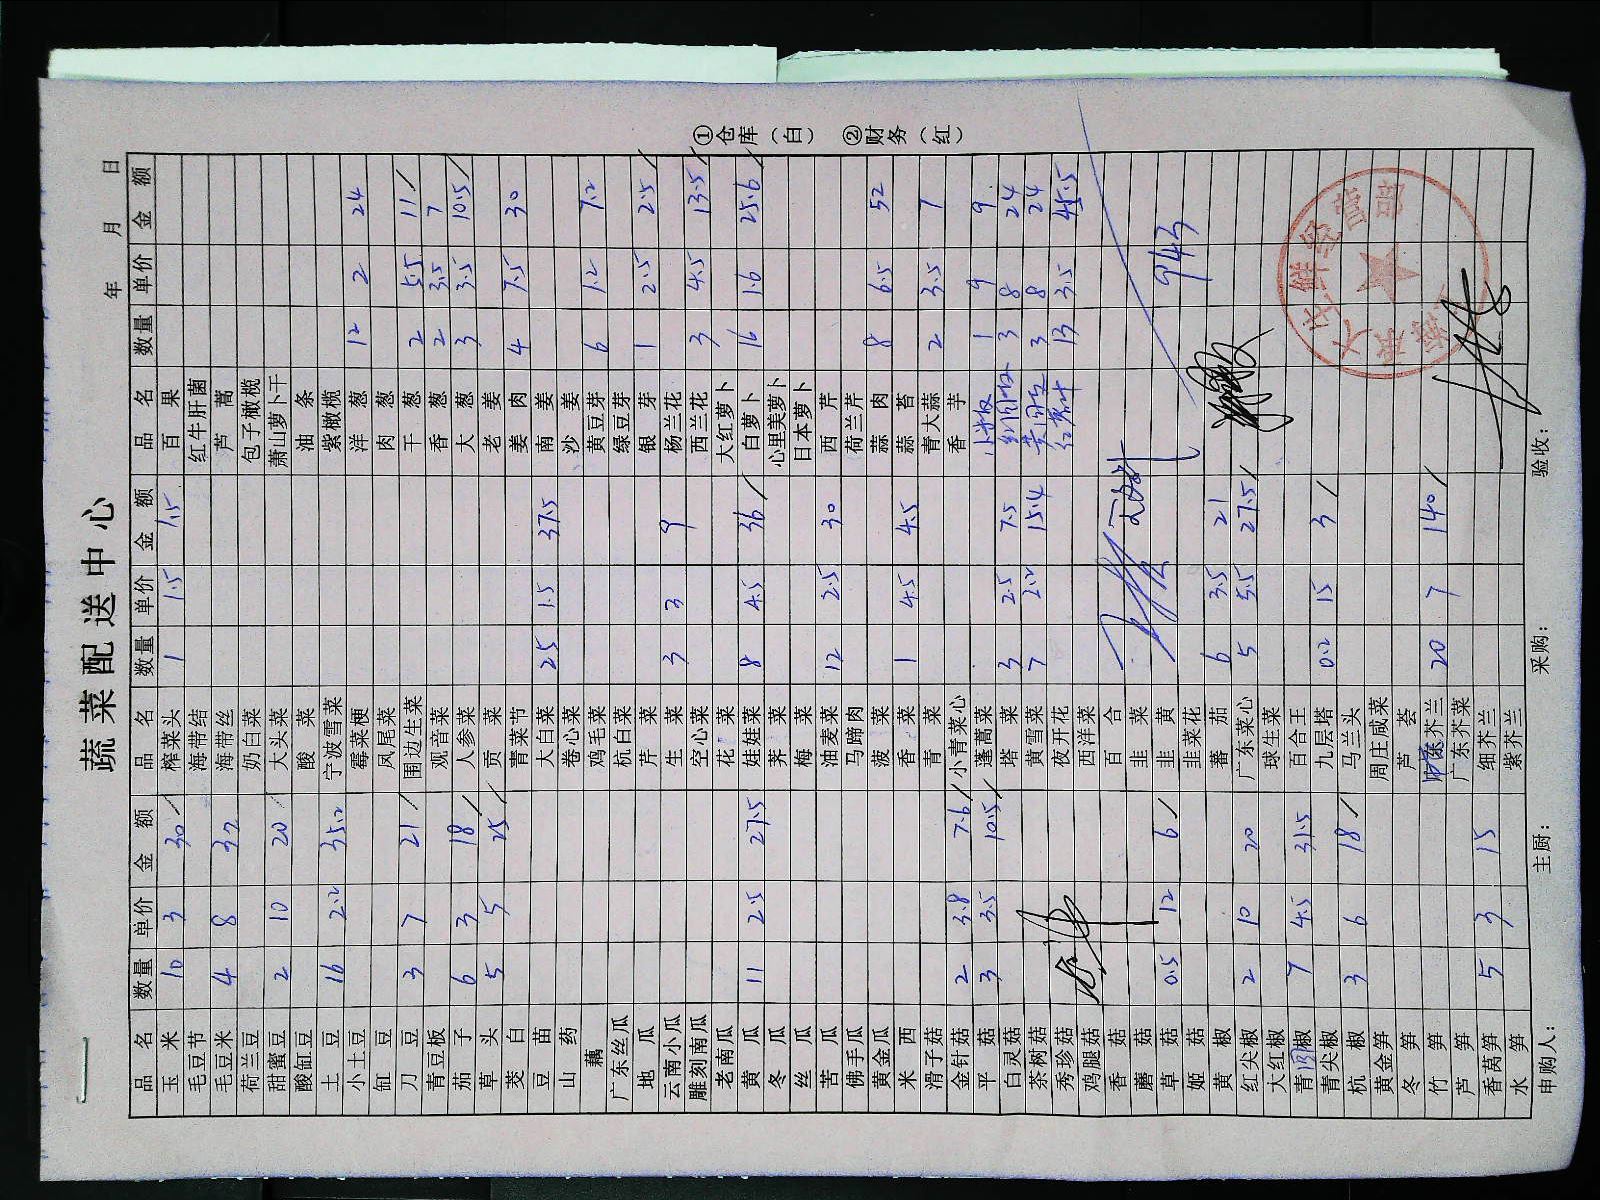 蔬菜配送中心
年 月 日
品名 数量 单价 金额 品名 数量 单价 金额 品名 数量 单价 金额
玉米 10 3 30 榨菜头 1 1.5 1.5 百果
毛豆节 海带结 红牛肝菌
毛豆米 4 8 32 海带丝 芦蒿
荷兰豆 奶白菜 包子橄榄
甜蜜豆 2 10 20 大头菜 萧山萝卜干
酸缸豆 酸菜 油条
土豆 16 2.2 35.2 宁波雪菜 紫橄榄
小土豆 霉菜梗 洋葱 12 2 24
缸豆 凤尾菜 肉葱
刀豆 3 7 21 围边生菜 干葱 2 5.5 11
青豆板 观音菜 香葱 2 3.5 7
茄子 6 3 18 人参菜 大葱 3 3.5 10.5
草头 5 5 25 贡菜 老姜
茭白 青菜节 姜肉 4 7.5 30
豆苗 大白菜 25 1.5 37.5 南姜
山药 卷心菜 沙姜
藕 鸡毛菜 黄豆芽 6 1.2 7.2
广东丝瓜 杭白菜 绿豆芽
地瓜 芹菜 银芽 1 2.5 2.5
云南小瓜 生菜 3 3 9 杨兰花
雕刻南瓜 空心菜 西兰花 3 4.5 13.5
老南瓜 花菜 大红萝卜
黄瓜 11 2.5 27.5 娃娃菜 8 4.5 36 白萝卜 16 1.6 25.6
冬瓜 荠菜 心里美萝卜
丝瓜 梅菜 日本萝卜
苦瓜 油麦菜 12 2.5 30 西芹
佛手瓜 马蹄肉 荷兰芹
黄金瓜 菠菜 蒜肉 8 6.5 52
米西 香菜 1 4.5 4.5 蒜苔
滑子菇 青菜 青大蒜 2 3.5 7
金针菇 2 3.8 7.6 小青菜心 香芋
平菇 3 3.5 10.5 蓬蒿菜 1 9 9
白灵菇 塔菜 3 2.5 7.5 3 8 24
茶树菇 黄雪菜 7 2.2 15.4 3 8 24
秀珍菇 夜开花 13 3.5 45.5
鸡腿菇 西洋菜
香菇 百合
蘑菇 韭菜
草菇 0.5 12 6 韭黄 943
姬菇 韭菜花
黄椒 蕃茄 6 3.5 21
红尖椒 2 10 20 广东菜心 5 5.5 27.5
大红椒 球生菜
青圆椒 7 4.5 31.5 百合王
青尖椒 九层塔 0.2 15 3
杭椒 3 6 18 马兰头
黄金笋 周庄咸菜
冬笋 芦荟
竹笋 芥兰 20 7 140
芦笋 广东芥菜
香莴笋 5 3 15 细芥兰
水笋 紫芥兰
申购人: 主厨: 采购: 验收:
①仓库（白） ②财务（红）